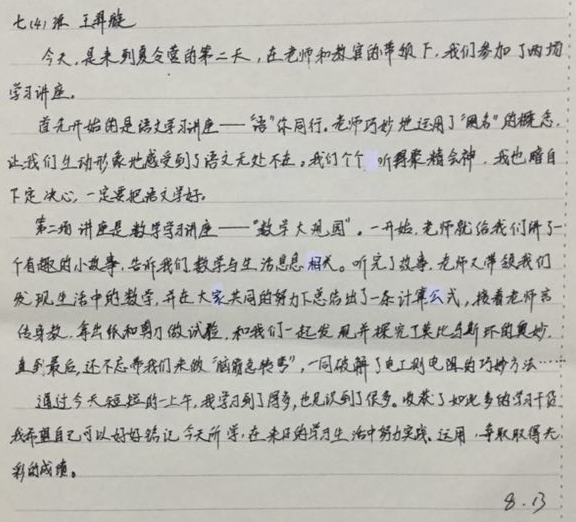 七(4)班 王羿璇
今天,是来到夏令营的第二天,在老师和教官的带领下,我们参加了两场
学习讲座。
首先开始的是语文学习讲座——“语”你同行。老师巧妙地运用了“网名”的概念,
让我们生动形象地感受到了语文无处不在,我们个个听得聚精会神,我也暗自
下定决心,一定要把语文学好。
第二场讲座是数学学习讲座——“数学大观园”。一开始,老师就给我们讲了一
个有趣的小故事,告诉我们数学与生活息息相关。听完了故事,老师又带领我们
发现生活中的数学,并在大家共同的努力下总结出了一条计算公式,接着老师言
传身教,拿出纸和剪刀做试验,和我们一起发现并探究了莫比乌斯环的奥妙,
直到最后,还不忘带我们来做“脑筋急转弯”,一同破解了电工测电阻的巧妙方法……
通过今天短短的一上午,我学习到了很多,也见识到了很多。收获了如此多的学习干货
我希望自己可以好好铭记今天所学,在未来的学习生活中努力实践、运用,争取取得光
彩的成绩。
8.13